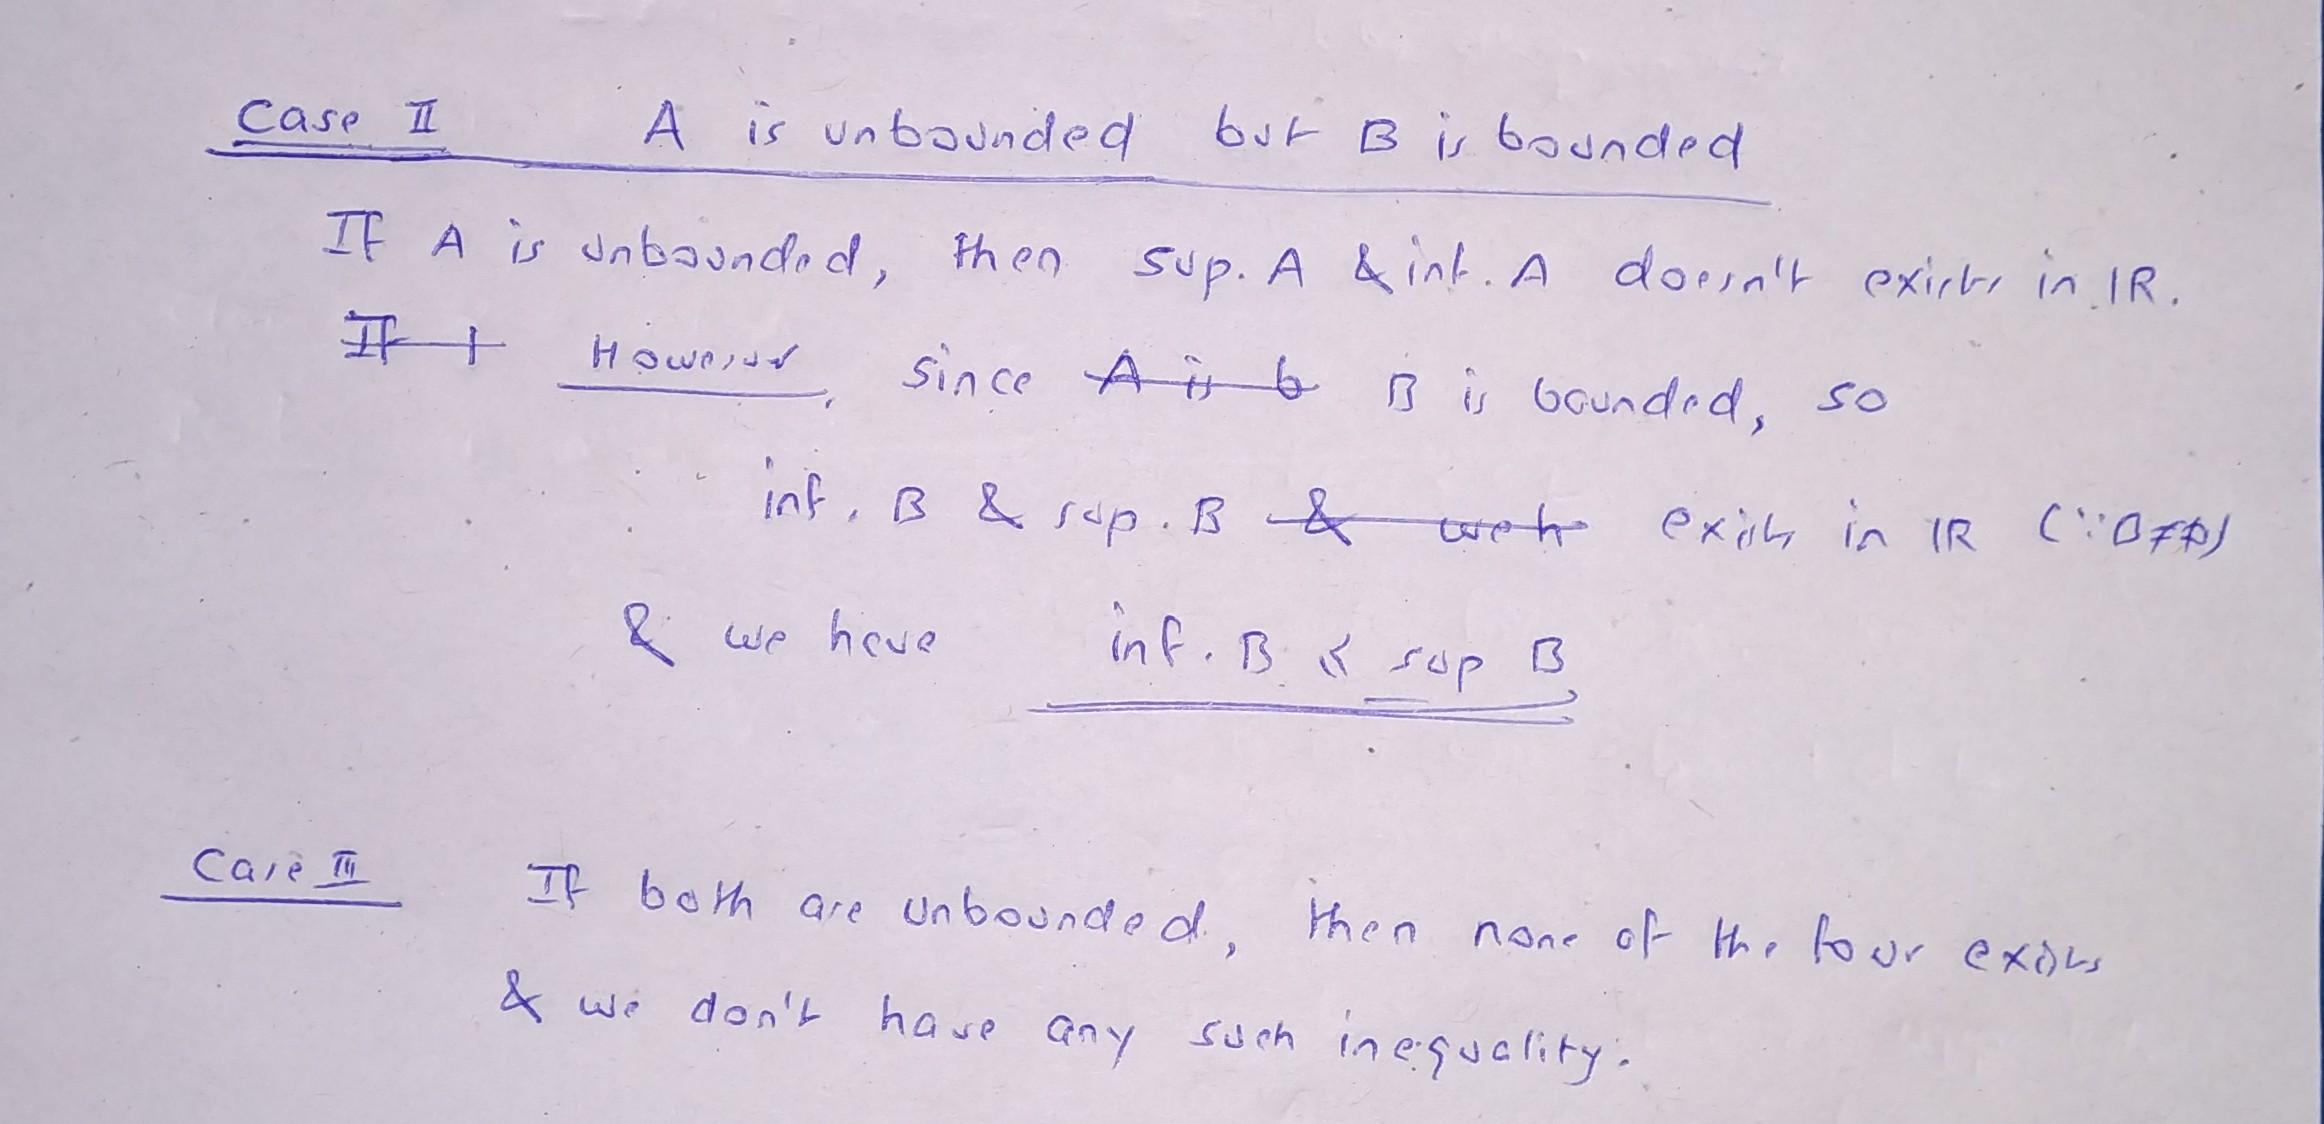 Case II A is unbounded but B is bounded
If A is unbounded, then sup. A & inf. A doesn't exists in IR.
If t However, since A is b B is bounded, so
inf. B & sup. B & we h exists in IR (∵ B≠ϕ)
& we have inf. B ≤ sup B
Case III If both are unbounded, then none of the four exists
& we don't have any such inequality.